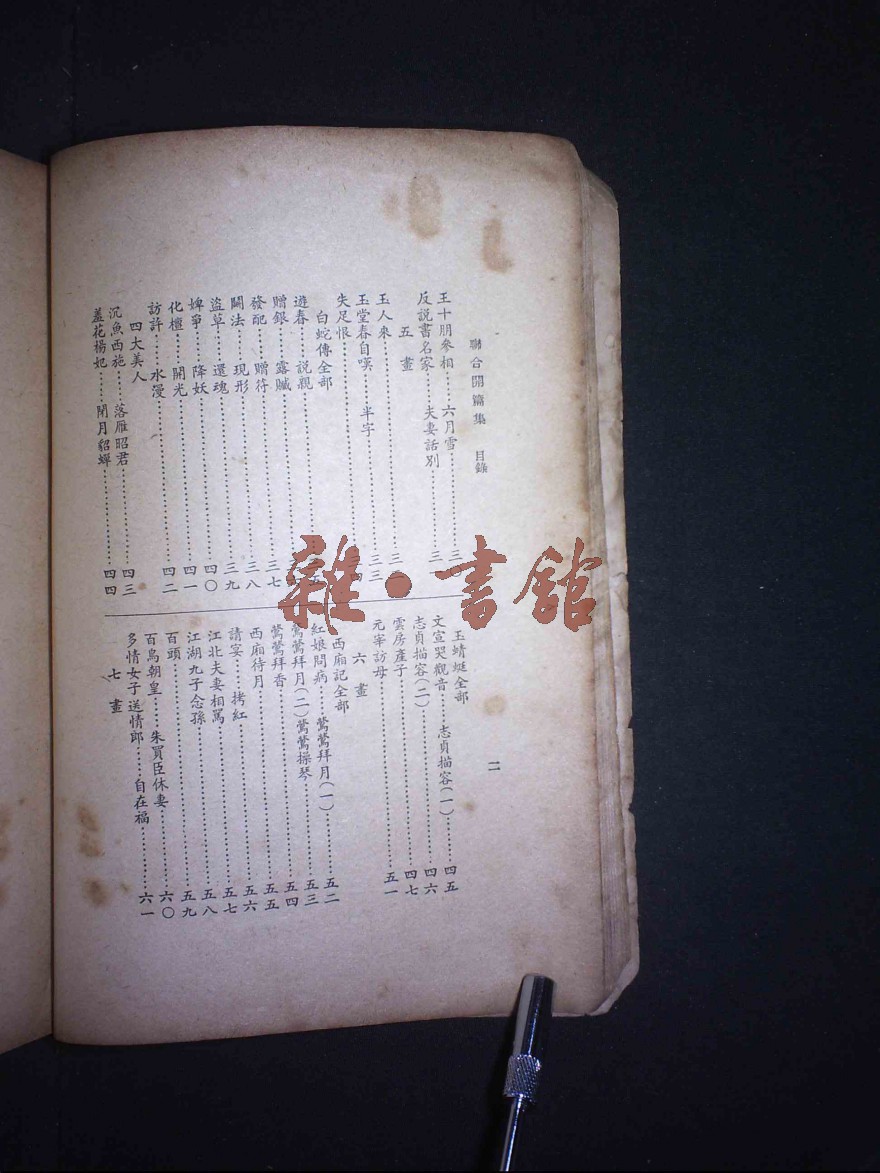 聯合開篇集 目錄
二
王十朋參相 六月雪……三〇
反說書名家……夫妻話別……三
五畫
玉人來……三二
玉堂春自嘆……半字……三三
失足恨……三四
白蛇傳全部
遊春 說親……三五
贈銀 露贓
發配……贈符……三七
鬭法……現形……三八
盜草 還魂……三九
婢爭 降妖……四〇
化檀……開光……四一
訪許……水漫……四二
四大美人
沉魚西施……落雁昭君……四三
羞花楊妃……閉月貂蟬……四四
玉蜻蜓全部
文宣哭觀音……志貞描容(一)……四五
志貞描容(二)……四六
雲房產子……四七
元宰訪母……五一
六畫
西廂記全部
紅娘問病……鶯鶯拜月(一)……五二
鶯鶯拜月(二)鶯鶯操琴……五三
鶯鶯拜香……五四
西廂待月……五五
請宴……拷紅……五六
江北夫妻相罵……五七
江湖九子念孫……五八
百頭……五九
百鳥朝皇……朱買臣休妻……六〇
多情女子送情郎……自在福……六一
七畫
雜·書館